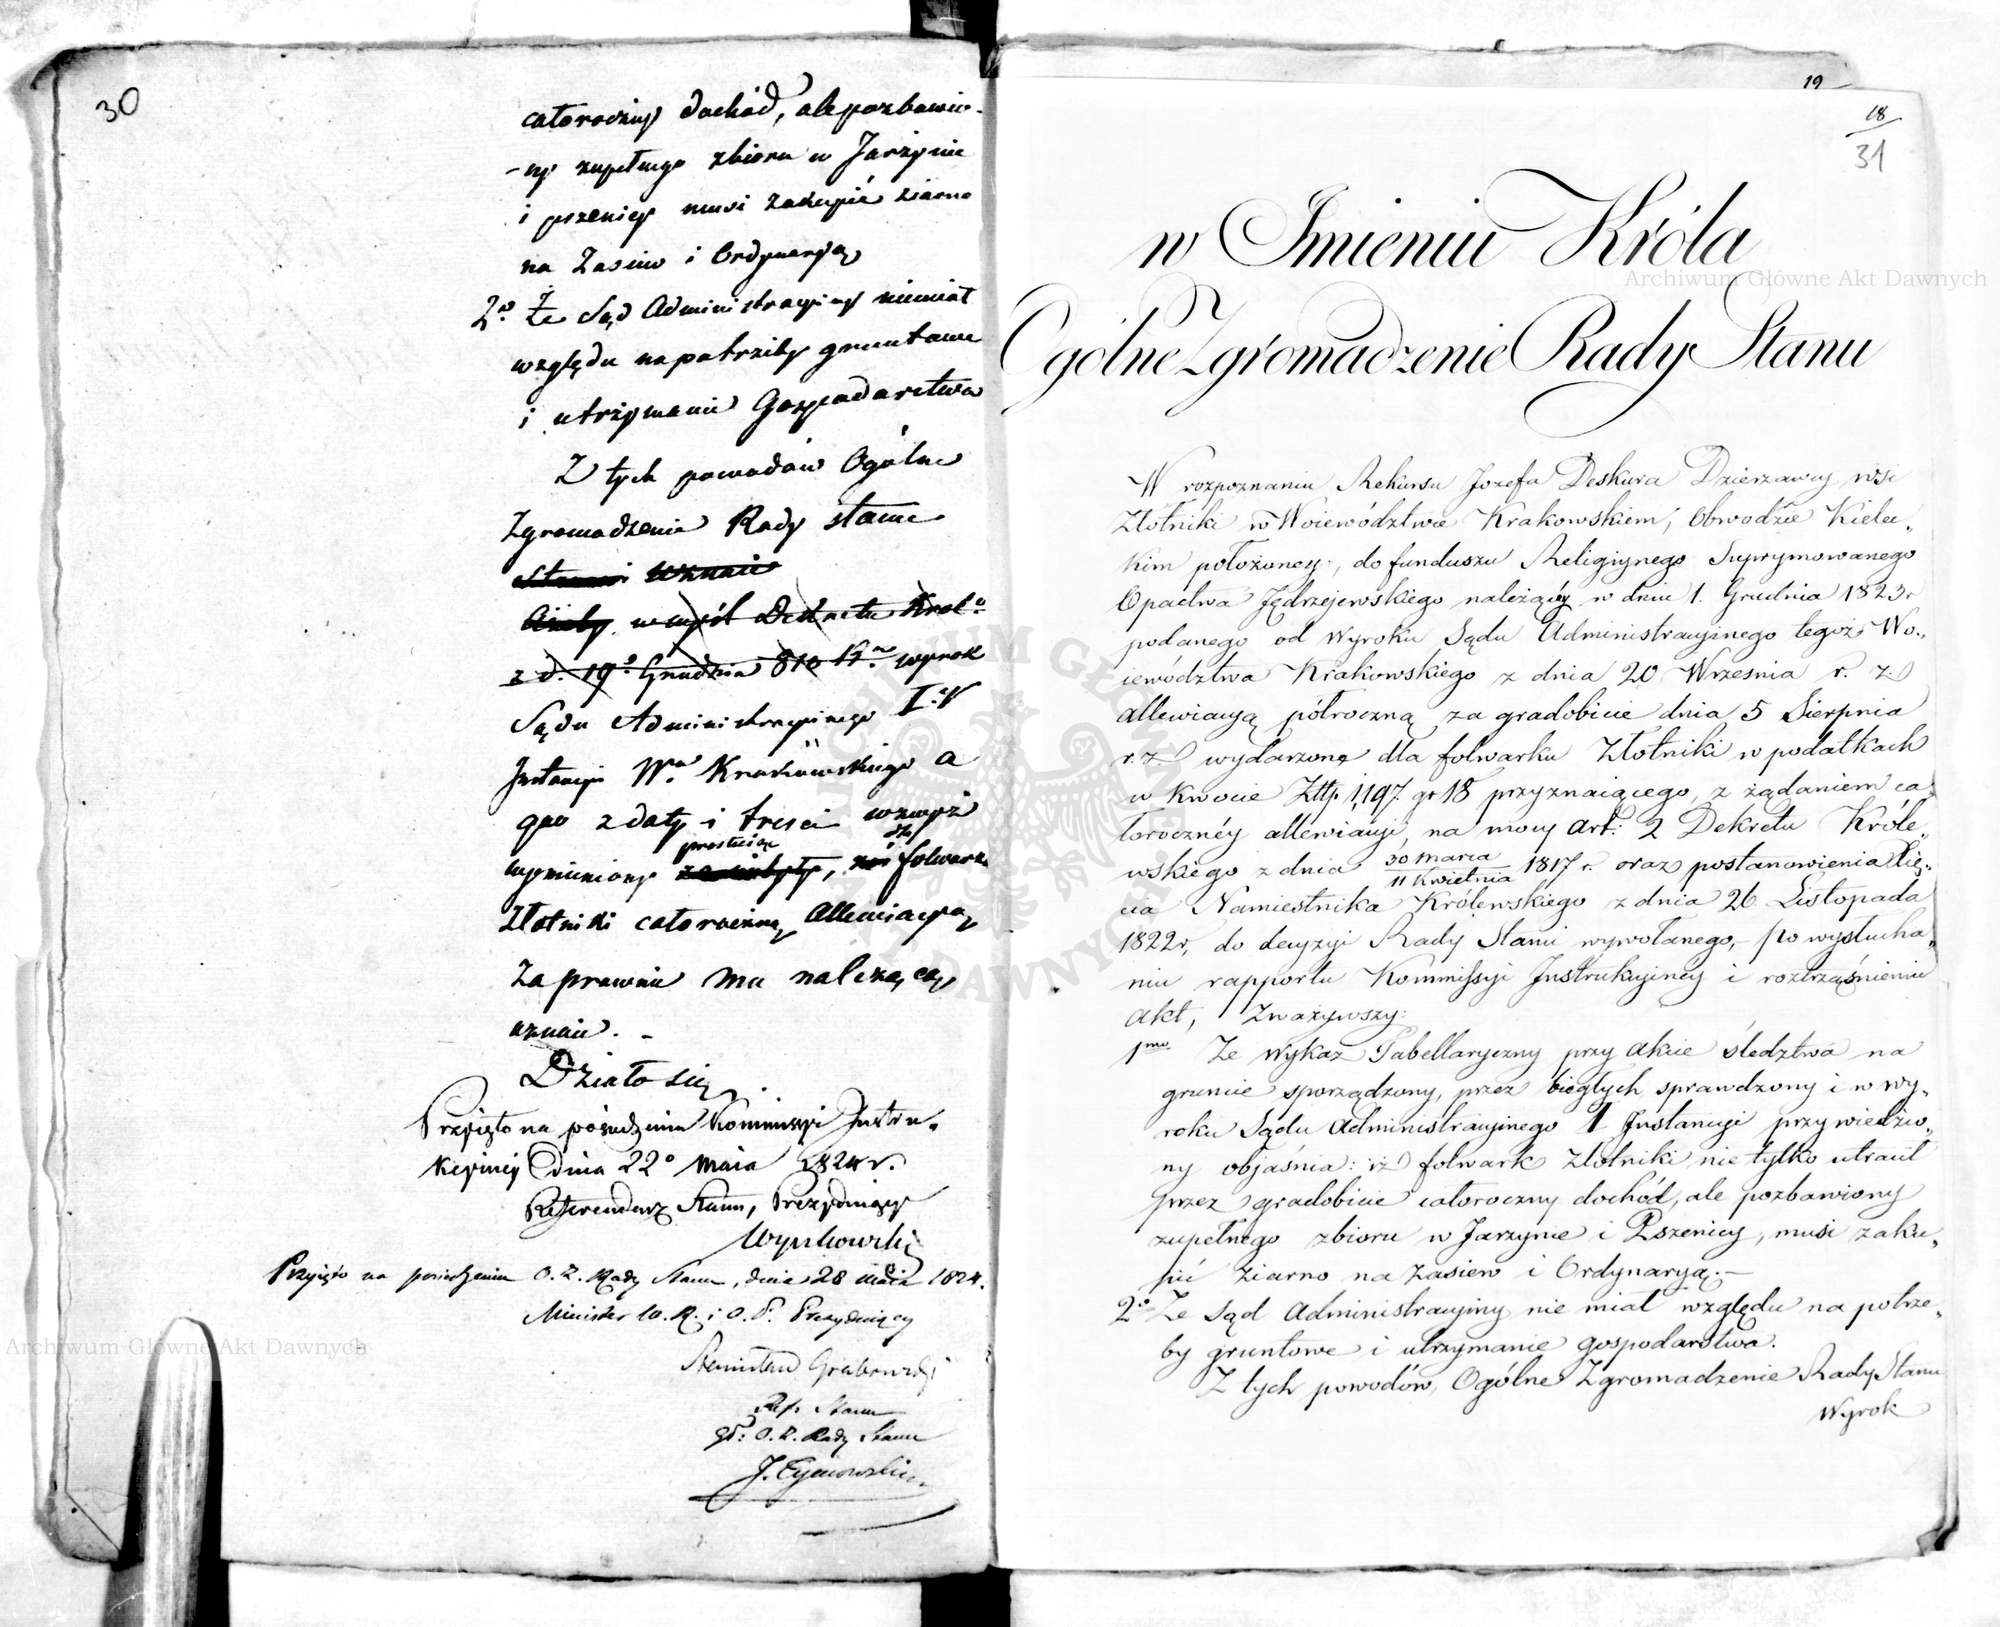 30
całoroczny dochód, ale pozbawio-
-ny zupełnego zbioru w Jarzynie
i pszenicy musi zakupić ziarno
na Zasiew i Ordynaryą
2o. Że Sąd Administracyiny niemiał
względu na potrzeby gruntowe
i utrzymanie Gospodarstwa
Z tych powodów Ogólne
Zgromadzenie Rady stanu
z d. 19o Grudnia 810 wyrok
Sądu Administracyinego I.y
Instancyi Wa. Krakowskiego a
quo z daty i treści wzwyż
prostuiąc dla
wymieniony folwarku
Złotniki całoroczną Allewiacyą
za prawnie mu należącą
uznaie. -
Działo się
Przyięto na posiedzeniu Kommissyi Instru-
kcyiney dnia 22o Maia 1824 r.
Referendarz Stanu, Prezyduiący
Wyczechowski
Przyięto na posiedzeniu O. Z. Rady Stanu, dnia 28 Maia 1824.
Minister W. R. i O. P. Prezyduiący
Stanisław Grabowski
Ref. Stanu
O. Z. Rady Stanu
J. Tymowski
19
18
31
w Imieniu Króla
Ogólne Zgromadzenie Rady Stanu
W rozpoznaniu Rekursu Jozefa Deskura Dzierzawcy wsi
Złotniki w Woiewództwie Krakowskiem, Obwodzie Kielec-
kim położoney, do funduszu Religiynego Supprymowanego
Opactwa Jędrzejewskiego należącéy w dniu 1. Grudnia 1823 r
podanego od Wyroku Sądu Administracyjnego tegoż Wo-
iewództwa Krakowskiego z dnia 20 Wrzesnia r. z.
allewiacyą półroczną za gradobicie dnia 5 Sierpnia
r. z. wydarzone dla folwarku Złotniki w podatkach
w kwocie Złtp. 1,197. gr 18 przyznaiącego, z żądaniem ca-
łorocznéy allewiacyi, na mocy art: 2 Dekretu Króle-
wskiego z dnia 30 marca / 11 Kwietnia 1817 r. oraz postanowienia Xię-
cia Namiestnika Królewskiego z dnia 26 Listopada
1822 r, do decyzyi Rady Stanu wywołanego, - Po wysłucha-
niu rapportu Kommissyi Instrukcyjney i roztrząśnieniu
akt, Zważywszy:
1mo Ze wykaz Tabellaryczny przy akcie śledztwa na
gruncie sporządzony, przez biegłych sprawdzony i w wy-
roku Sądu Administracyjnego I Instancyi przywiedzio-
ny objaśnia: iż folwark Złotniki nie tylko utracił
przez gradobicie całoroczny dochód, ale pozbawiony
zupełnego zbioru w Jarzynie i Pszenicy, musi zaku-
pić ziarno na zasiew i Ordynaryą. -
2o Ze Sąd Administracyjny nie miał względu na potrze-
by gruntowe i utrzymanie gospodarstwa.
Z tych powodów, Ogólne Zgromadzenie Rady Stanu
Wyrok
Archiwum Główne Akt Dawnych
Archiwum Główne Akt Dawnych
ARCHIWUM GŁÓWNE AKT DAWNYCH